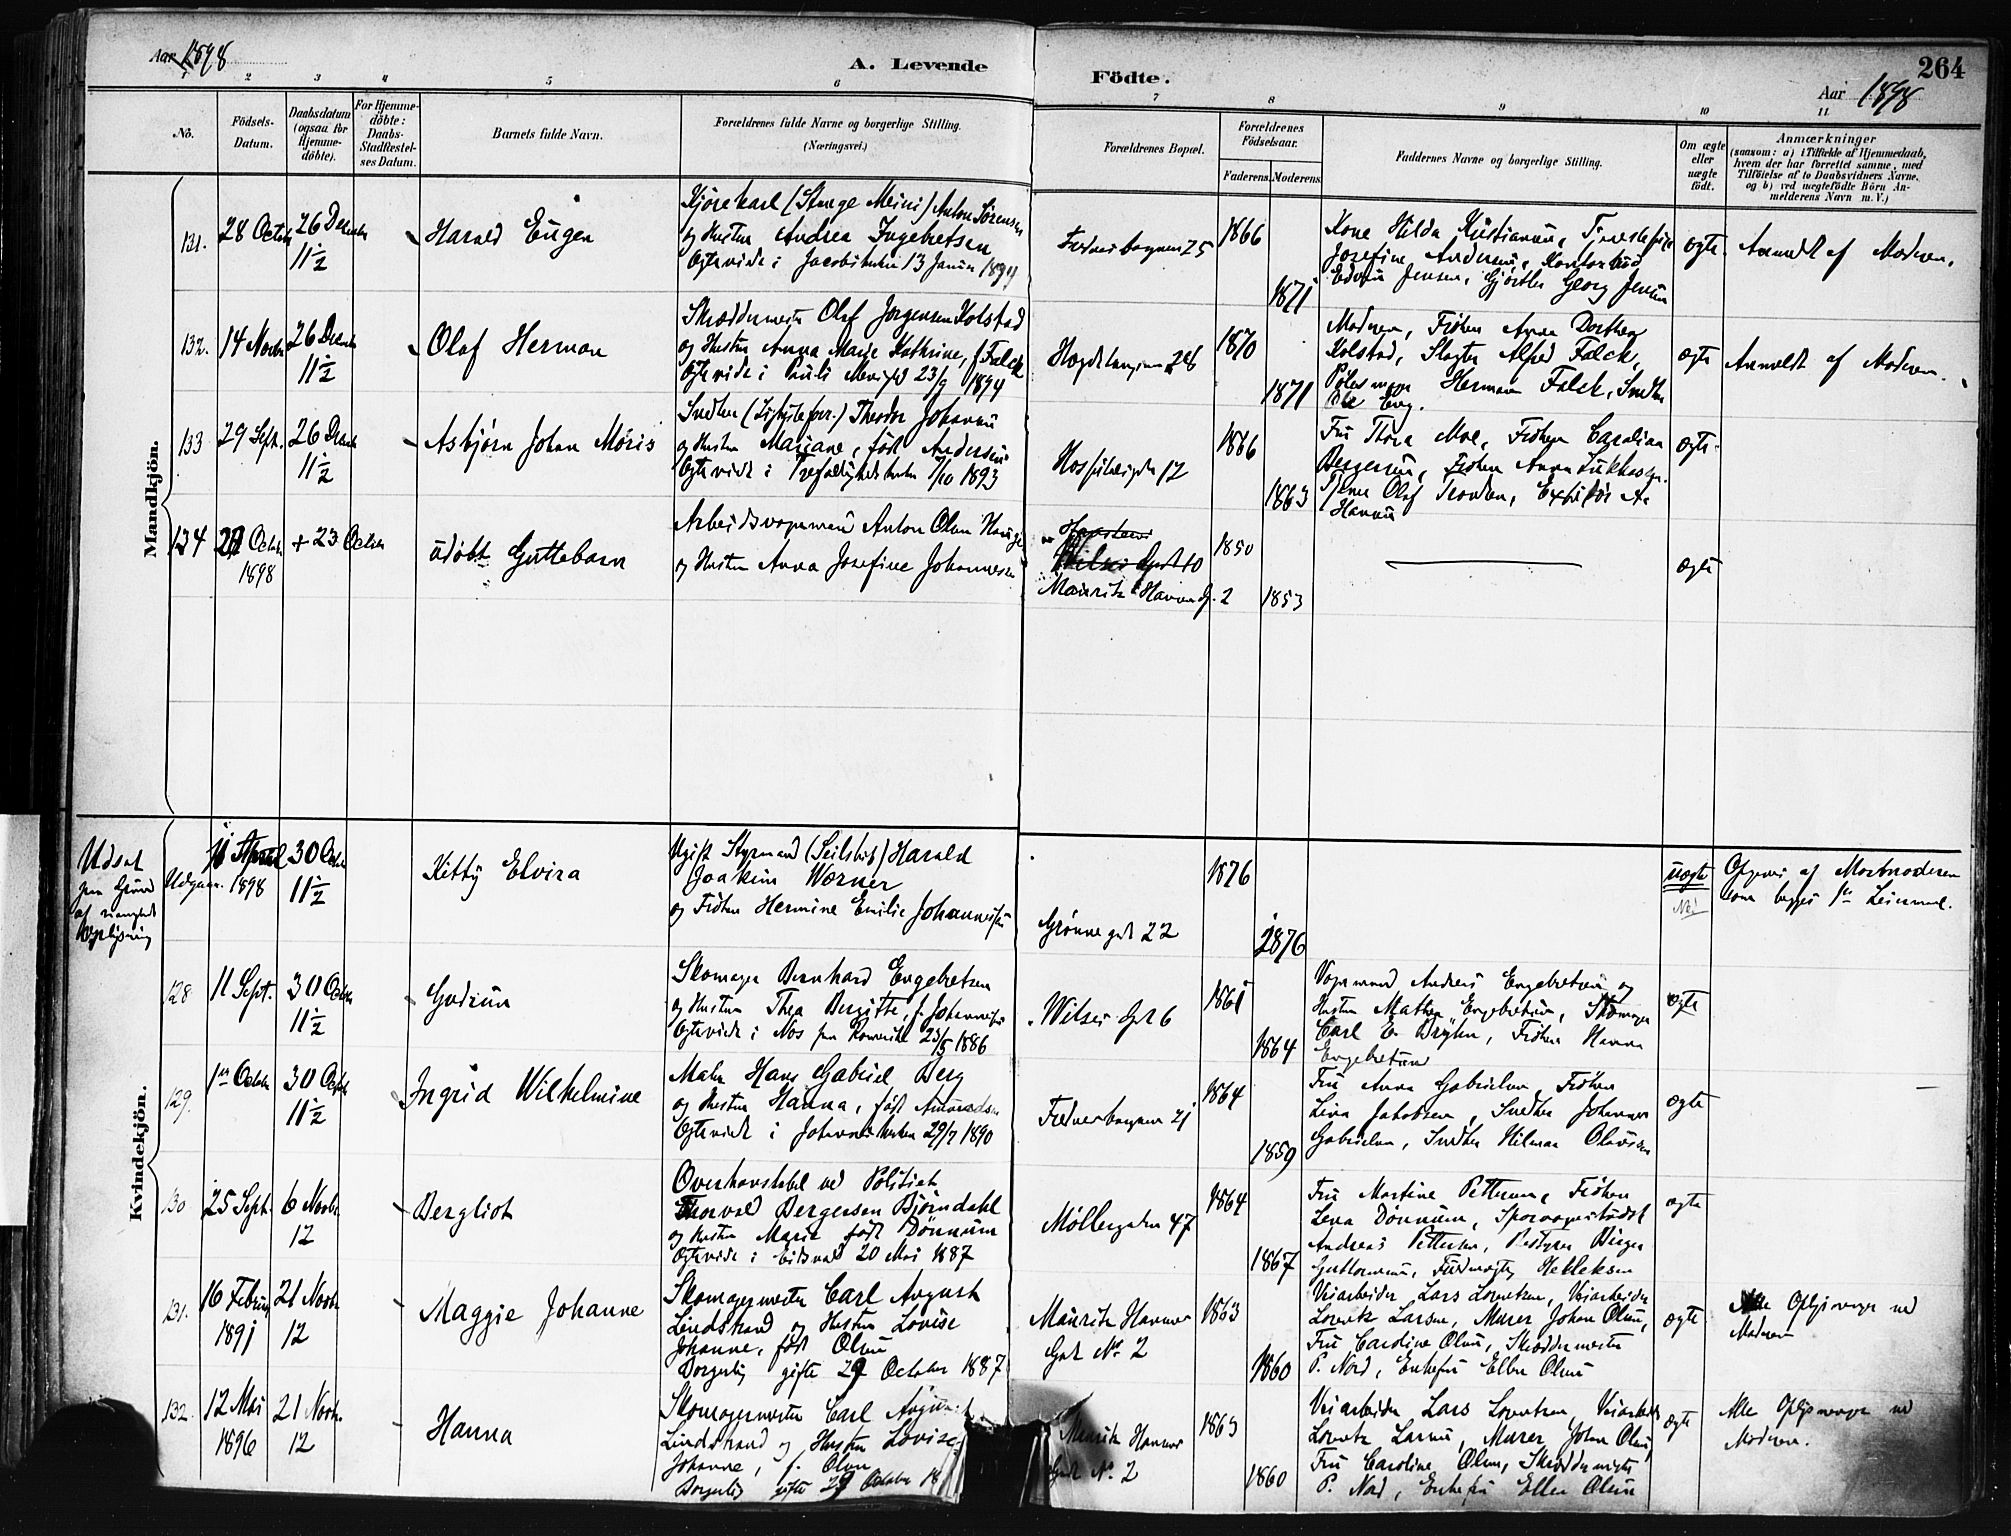 Aar 1898
A. Levende
Födte.
264
Aar 1898
2 3 4 5 6 7 8 9 10 11
No.
Födsels-Datum.
Daabsdatum (ogsaa for Hjemme-döbte).
For Hjemme-döbte: Daabs-Stadfæstel-ses Datum.
Barnets fulde Navn.
Forældrenes fulde Navne og borgerlige Stilling.
(Næringsvei.)
Forældrenes Bopæl.
Forældrenes Födselsaar.
Faderens. Moderens.
Faddernes Navne og borgerlige Stilling.
Om ægte eller uægte født.
Anmærkninger
(saasom: a) i Tilfælde af Hjemmedaab, hvem der har forrettet samme, med Tilföielse af to Daabsvidners Navne, og b) ved uægtefödte Börn An-melderens Navn m. V.)
Mandkjön.
131. 28 Octob 26 Decemb 11½
Harald Eugen
Kjørekarl Anton Sørensen
og Hustru Andrea Ingebretsen
Ægteviede i Jacobskirken 13 Januar
25
1866
1871
Kone Hilda Kristiansen,
Josefine Andersen, Kontorbud
Jensen, Gjørtler Georg Jensen
ægte
Anmeldt af Moderen.
132. 14 Novbr 26 Decemb 11½
Olaf Herman
Skræddermester Olaf Jørgensen Kolstad
og Hustru Anna Marie Kathrine, f. Falck
Ægteviede i Pauli Menighed 23/9 1894
28
1870
1871
Moderen, Frøken Anna Dorthea
Kolstad, Slagter Alfred Falck,
Pølsemager Herman Falck, Snedker
Ole Eng.
ægte
Anmeldt af Moderen.
133 29 Sept. 26 Decemb 11½
Asbjørn Johan Møris
Snedker Theodor Johansen
og Hustru Mariane, født Andersen
Ægteviede i Trefoldighedskirken 1/10 1893
Hospitalsgaden 12
1866
1863
Fru Thora Moe, Frøken Carolina
Bergersen, Frøken Anna
Olaf Trondsen,
Hansen
ægte
134 Octob 1898 + 23 Octob
udøbt Guttebarn
Arbeidsvognmand Anton Olsen
og Hustru Anna Josefine Johannessen
Wilses Gade 10
Mauritz Hansens G. 2
1850
1853
ægte
Kvindekjön.
Udsat
paa Grund
af manglende
Oplysning
Udgaar. April 1898 30 Octb 11½
Kitty Elvira
Ugift Styrmand (Seilskib) Harald
Joakim Wørner
og Frøken Hermine Emilie Johannesen
Grønnegade 22
1876
1876
uægte
Nei
Opgivet af Mormoderen
som begges
128 11 Sept. 30 Octob 11½
Gudrun
Skomager Bernhard Engebretsen
og Hustru Thea Bergitte, f. Johannesen
Ægteviede i Nes paa Romerike 23/5 1886
Wilses Gade 6
1861
1864
Vognmand Andreas Engebretsen og
Hustru Mathea Engebretsen, Skomager
Carl E. Frøken Hanna
Engebretsen
ægte
129. 1ste Octob 30 Octob 11½
Ingrid Wilhelmine
Maler Hans Gabriel Berg
og Hustru Hanna, født Amundsen
Ægteviede i Johanneskirken 29/7 1890
21
1864
1859
Fru Anna Gabrielsen, Frøken
Lina Jakobsen, Snedker Johannes
Gabrielsen, Snedker Hilmar Olaussen
ægte
130 25 Sept. 6 Novbr. 12
Bergliot
Overkonstabel ved Politiet
Thorvald Bergersen Bjørndahl
og Hustru Marie født Dønnum
Ægteviede i Eidsvold 20 Mai 1887
Møllergaden 47
1864
1867
Fru Martine Pettersen, Frøken
Lena Dønnum,
Andreas Pettersen, Bestyrer Birger
Guttormsen,
ægte
131. 16 Februar 1891 21 Novbr 12
Maggie Johanne
Skomagermester Carl August
Lindstrand og Hustru Lovise
Johanne, født Olsen
Borgerlig gifte 29 October 1887
Mauritz Hansens
Gade No. 2
1863
1860
Veiarbeider Lars Lorentzen, Veiarbeider
Lorentz Larsen, Murer Johan Olsen,
Fru Caroline Olsen, Skræddermester
P. Nord, Enkefru Ellen Olsen
ægte
Alle Oplysninger ved
Moderen
132. 12 Mai 1896 21 Novb. 12
Hanna
Skomagermester Carl August
Lindstrand og Hustru Lovise
Johanne, f. Olsen
Borgerlig gifte 29 October 18
Mauritz Hansens
Gade No. 2
1863
1860
Veiarbeider Lars Lorentzen, Veiarbeider
Lorentz Larsen, Murer Johan Olsen,
Fru Caroline Olsen, Skræddermester
P. Nord, Enkefru Ellen Olsen
ægte
Alle Oplysninger ved
Moderen.